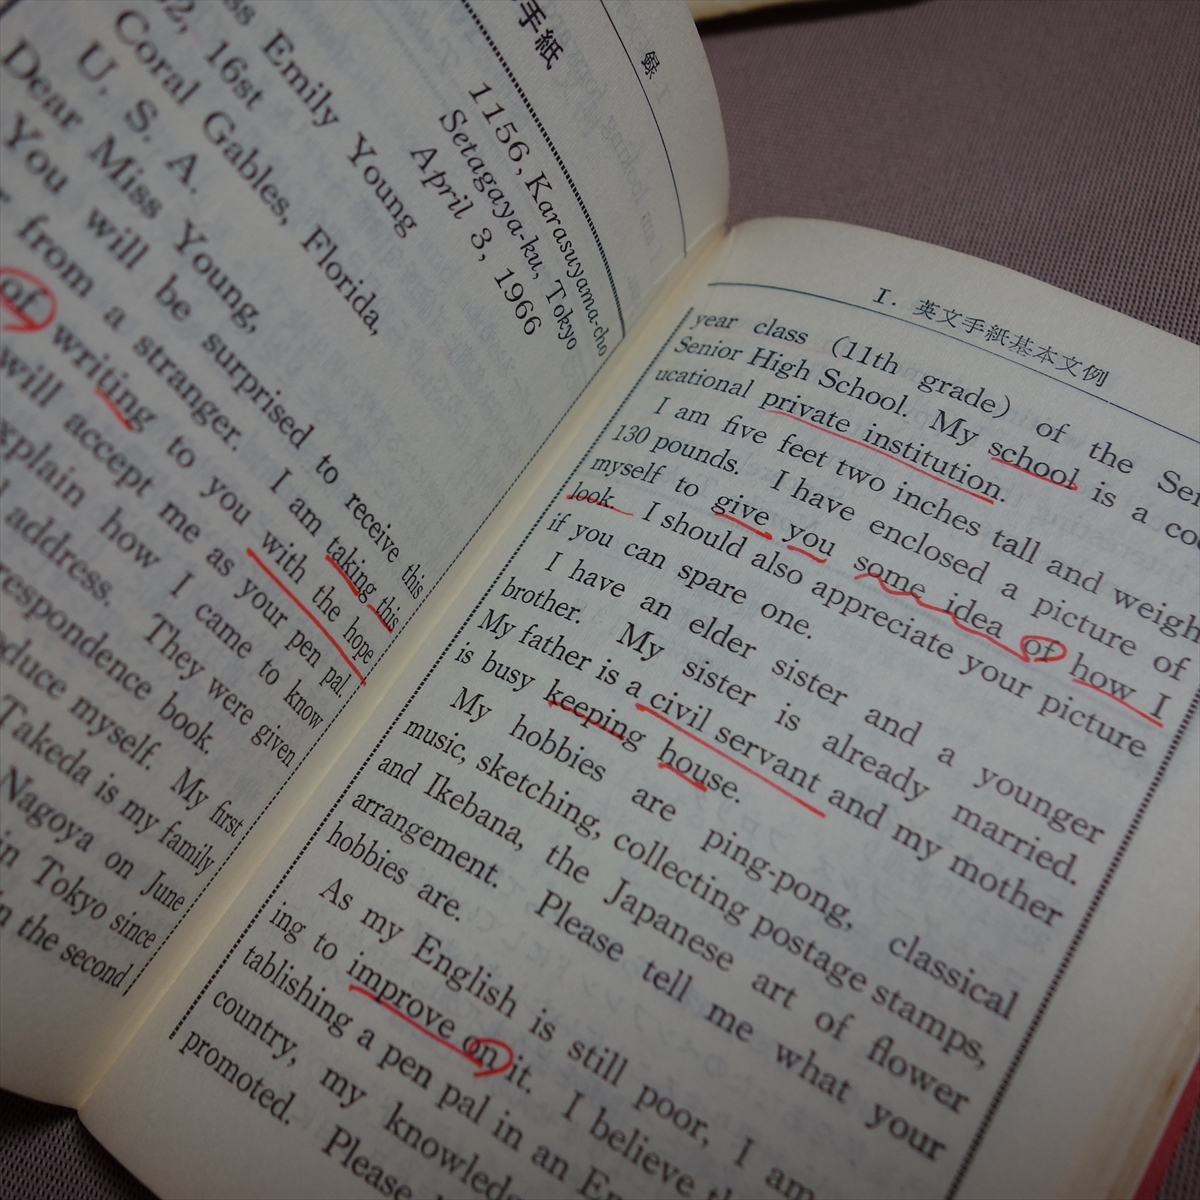 手紙
録 I
1156, Karasuyama-cho
Setagaya-ku, Tokyo
April 3, 1966
Emily Young
16st
Coral Gables, Florida,
U. S. A.
Dear Miss Young,
You will be surprised to receive this
from a stranger. I am taking this
of writing to you with the hope
will accept me as your pen pal.
explain how I came to know
address. They were given
book.
myself. My first
Takeda is my family
Nagoya on June
in Tokyo since
in the second
I. 英文手紙基本文例
year class (11th grade) of the
Senior High School. My school is a
ucational private institution.
I am five feet two inches tall and weigh
130 pounds. I have enclosed a picture of
myself to give you some idea of how I
look. I should also appreciate your picture
if you can spare one.
I have an elder sister and a younger
brother. My sister is already married.
My father is a civil servant and my mother
is busy keeping house.
My hobbies are ping-pong, classical
music, sketching, collecting postage stamps,
and Ikebana, the Japanese art of flower
arrangement. Please tell me what your
hobbies are.
As my English is still poor, I am
ing to improve on it. I believe
tablishing a pen pal in an
country, my
promoted. Please